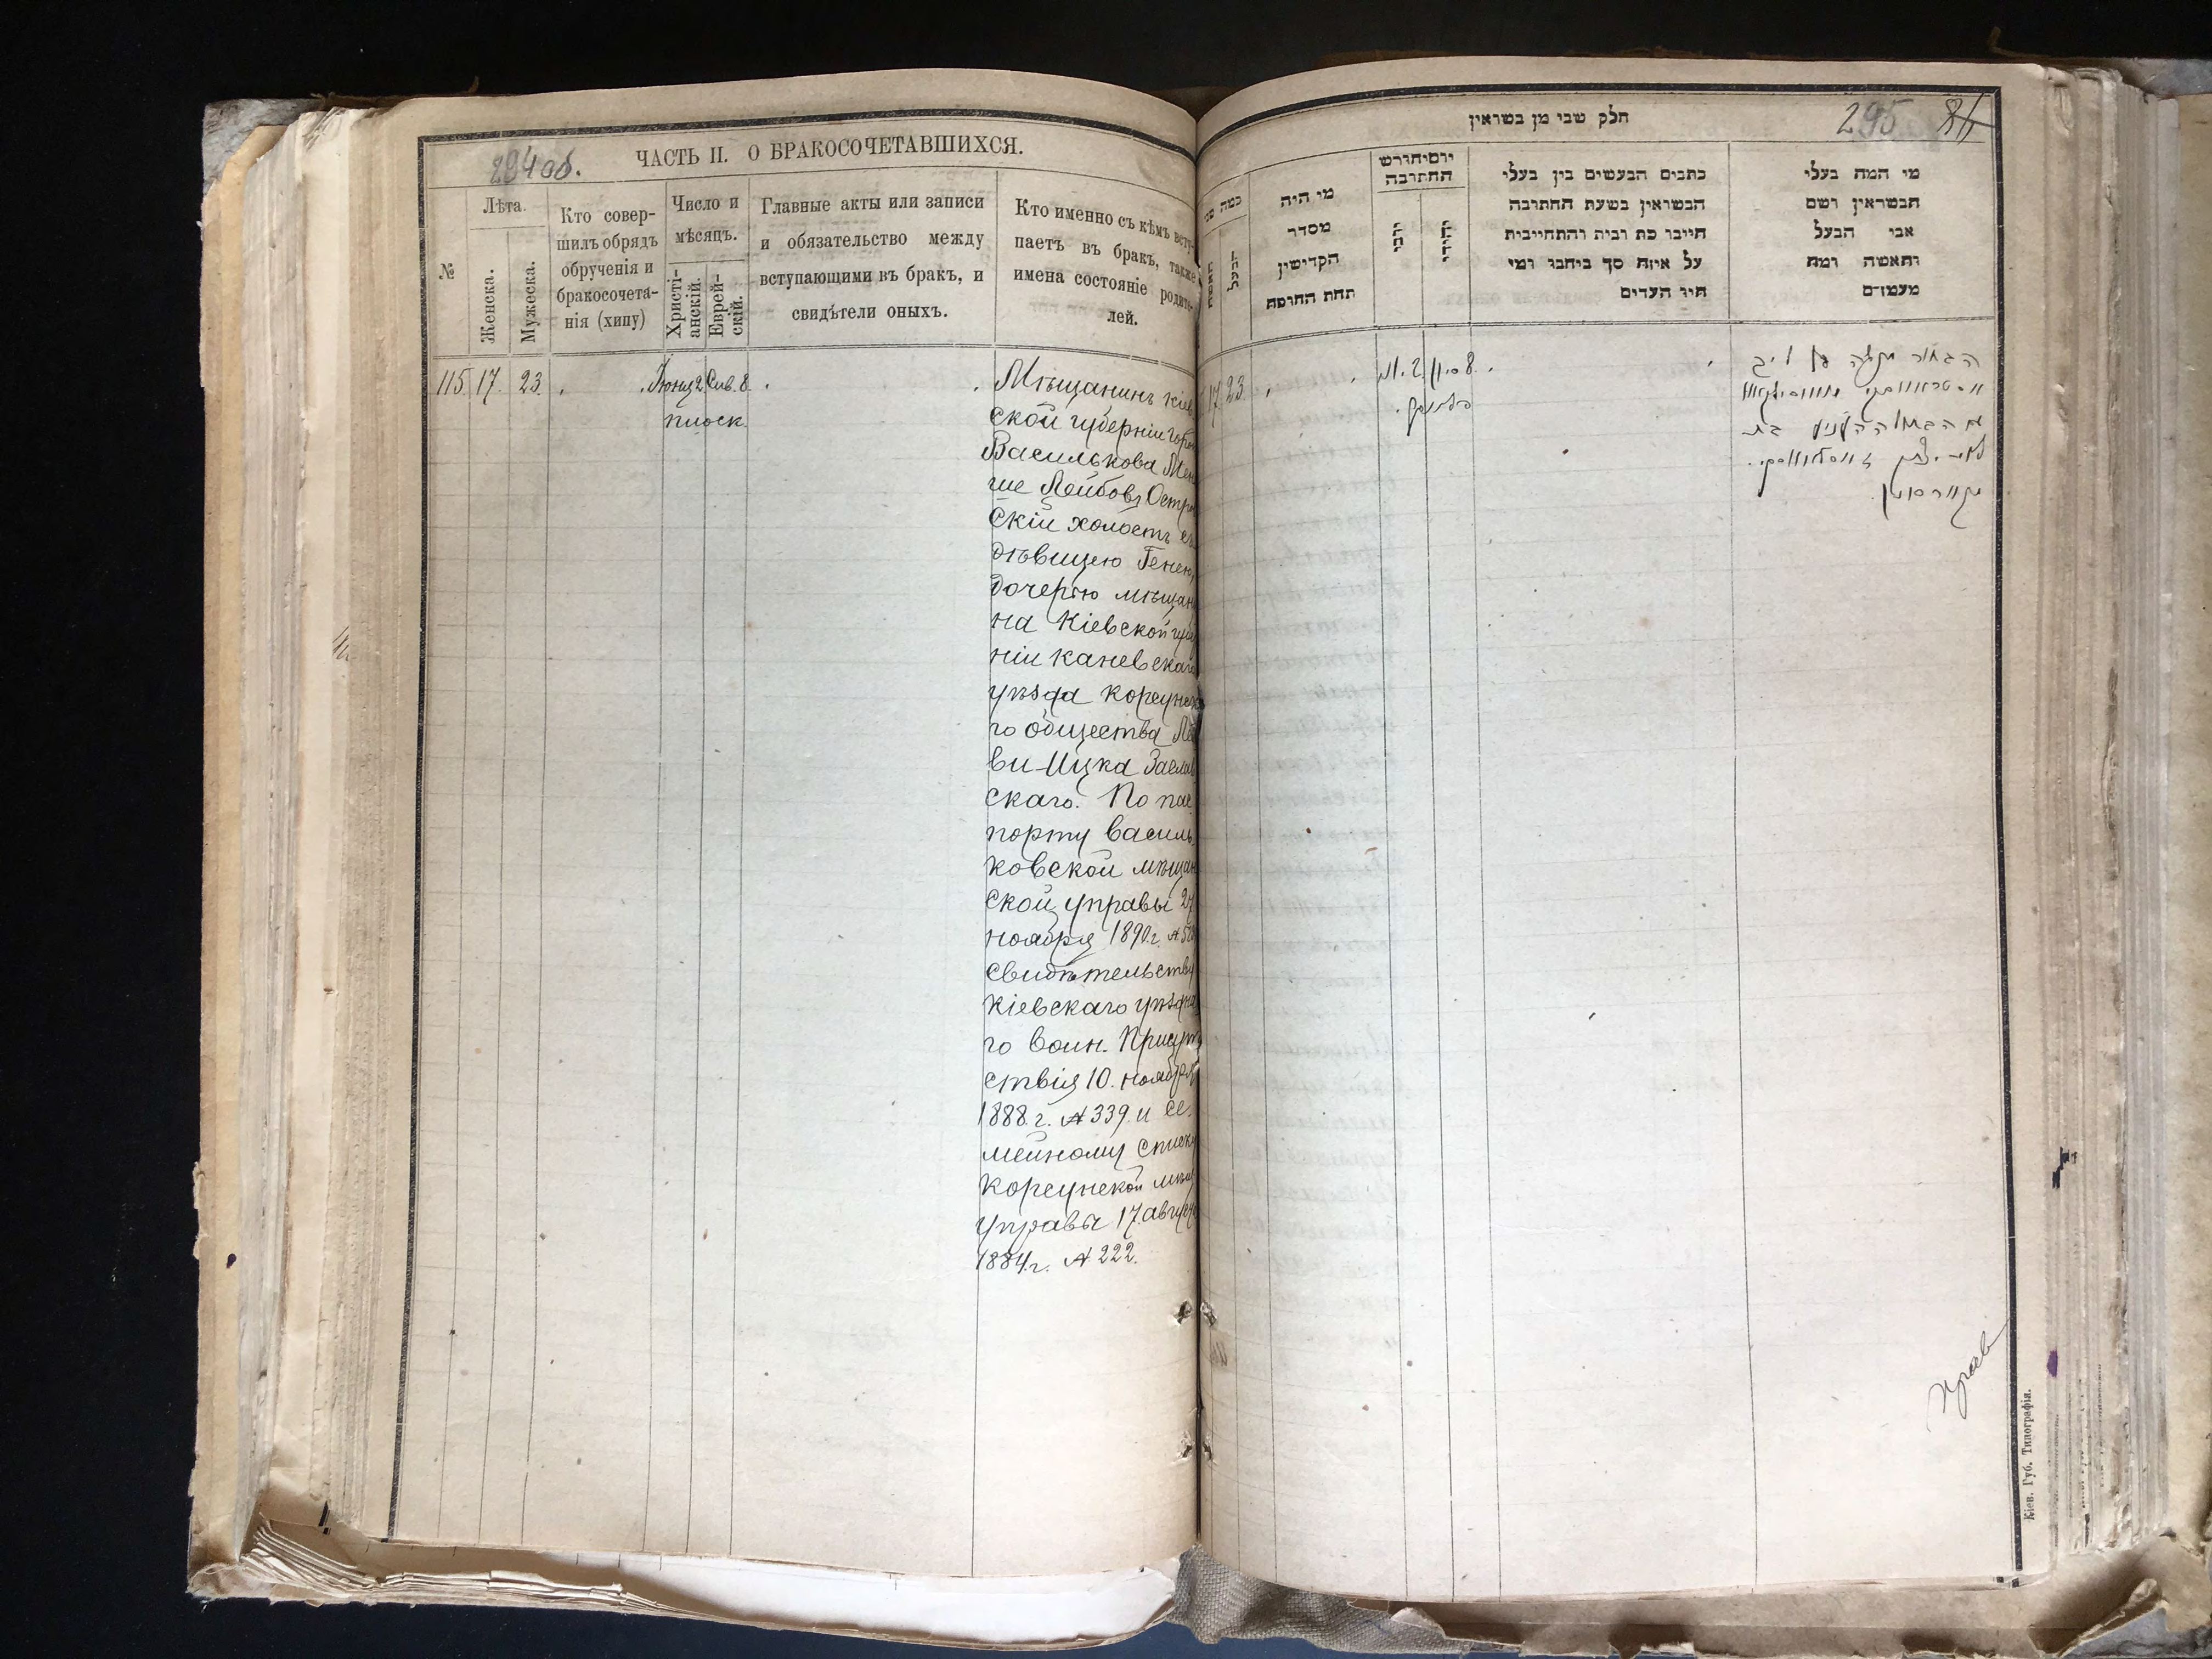 294 об.
ЧАСТЬ II. О БРАКОСОЧЕТАВШИХСЯ.
№
Лѣта.
Женска.
Мужеска.
Кто совер-
шилъ обрядъ
обрученія и
бракосочета-
нія (хипу)
Число и
мѣсяцъ.
Христі-
анскій.
Еврей-
скій.
Главные акты или записи
и обязательство между
вступающими въ бракъ, и
свидѣтели оныхъ.
Кто именно съ кѣмъ всту-
паетъ въ бракъ, также
имена состояніе родите-
лей.
115. 17. 23. Іюня 2. Сив. 8.
плоск.
Мѣщанинъ кіев
ской губерніи
Василькова
Лейбовъ Остро
скій холостъ съ
дѣвицею Генею,
дочерью мѣщан
на Кіевской
ніи каневскаго
уѣзда корсунска
го общества Ле
ви-Ицка Заслав
скаго. По пас
порту василь
ковской мѣщан
ской управы 27
ноября 1890 г. №
свидѣтельству
Кіевскаго уѣздна
го воин. Присут
ствія 10. ноября
1888 г. № 339. и се-
мейному списку
корсунской мѣщ
управы 17. августа
1884 г. № 222.
295
חלק שבי מן בשראין
מי המה בעלי
הבשראין ושם
אבי הבעל
והאשה ומה
מעמדם
כתבים הבעשים בין בעלי
הבשראין בשעת החתובה
חייבו כת ובית והתחייבית
על איזה סך ביחבו ומי
היו העדים
יום וחורש
החתובה
מי היה
מסדר
הקדישין
תחת החופה
הבעל
האשה
17. 23.
8 סיון
2. יוני
הבחור מנשה בן ליב
בת
לוי יצחק זאסלאווסקי.
מקורסון.
Кіев. Губ. Типографія.